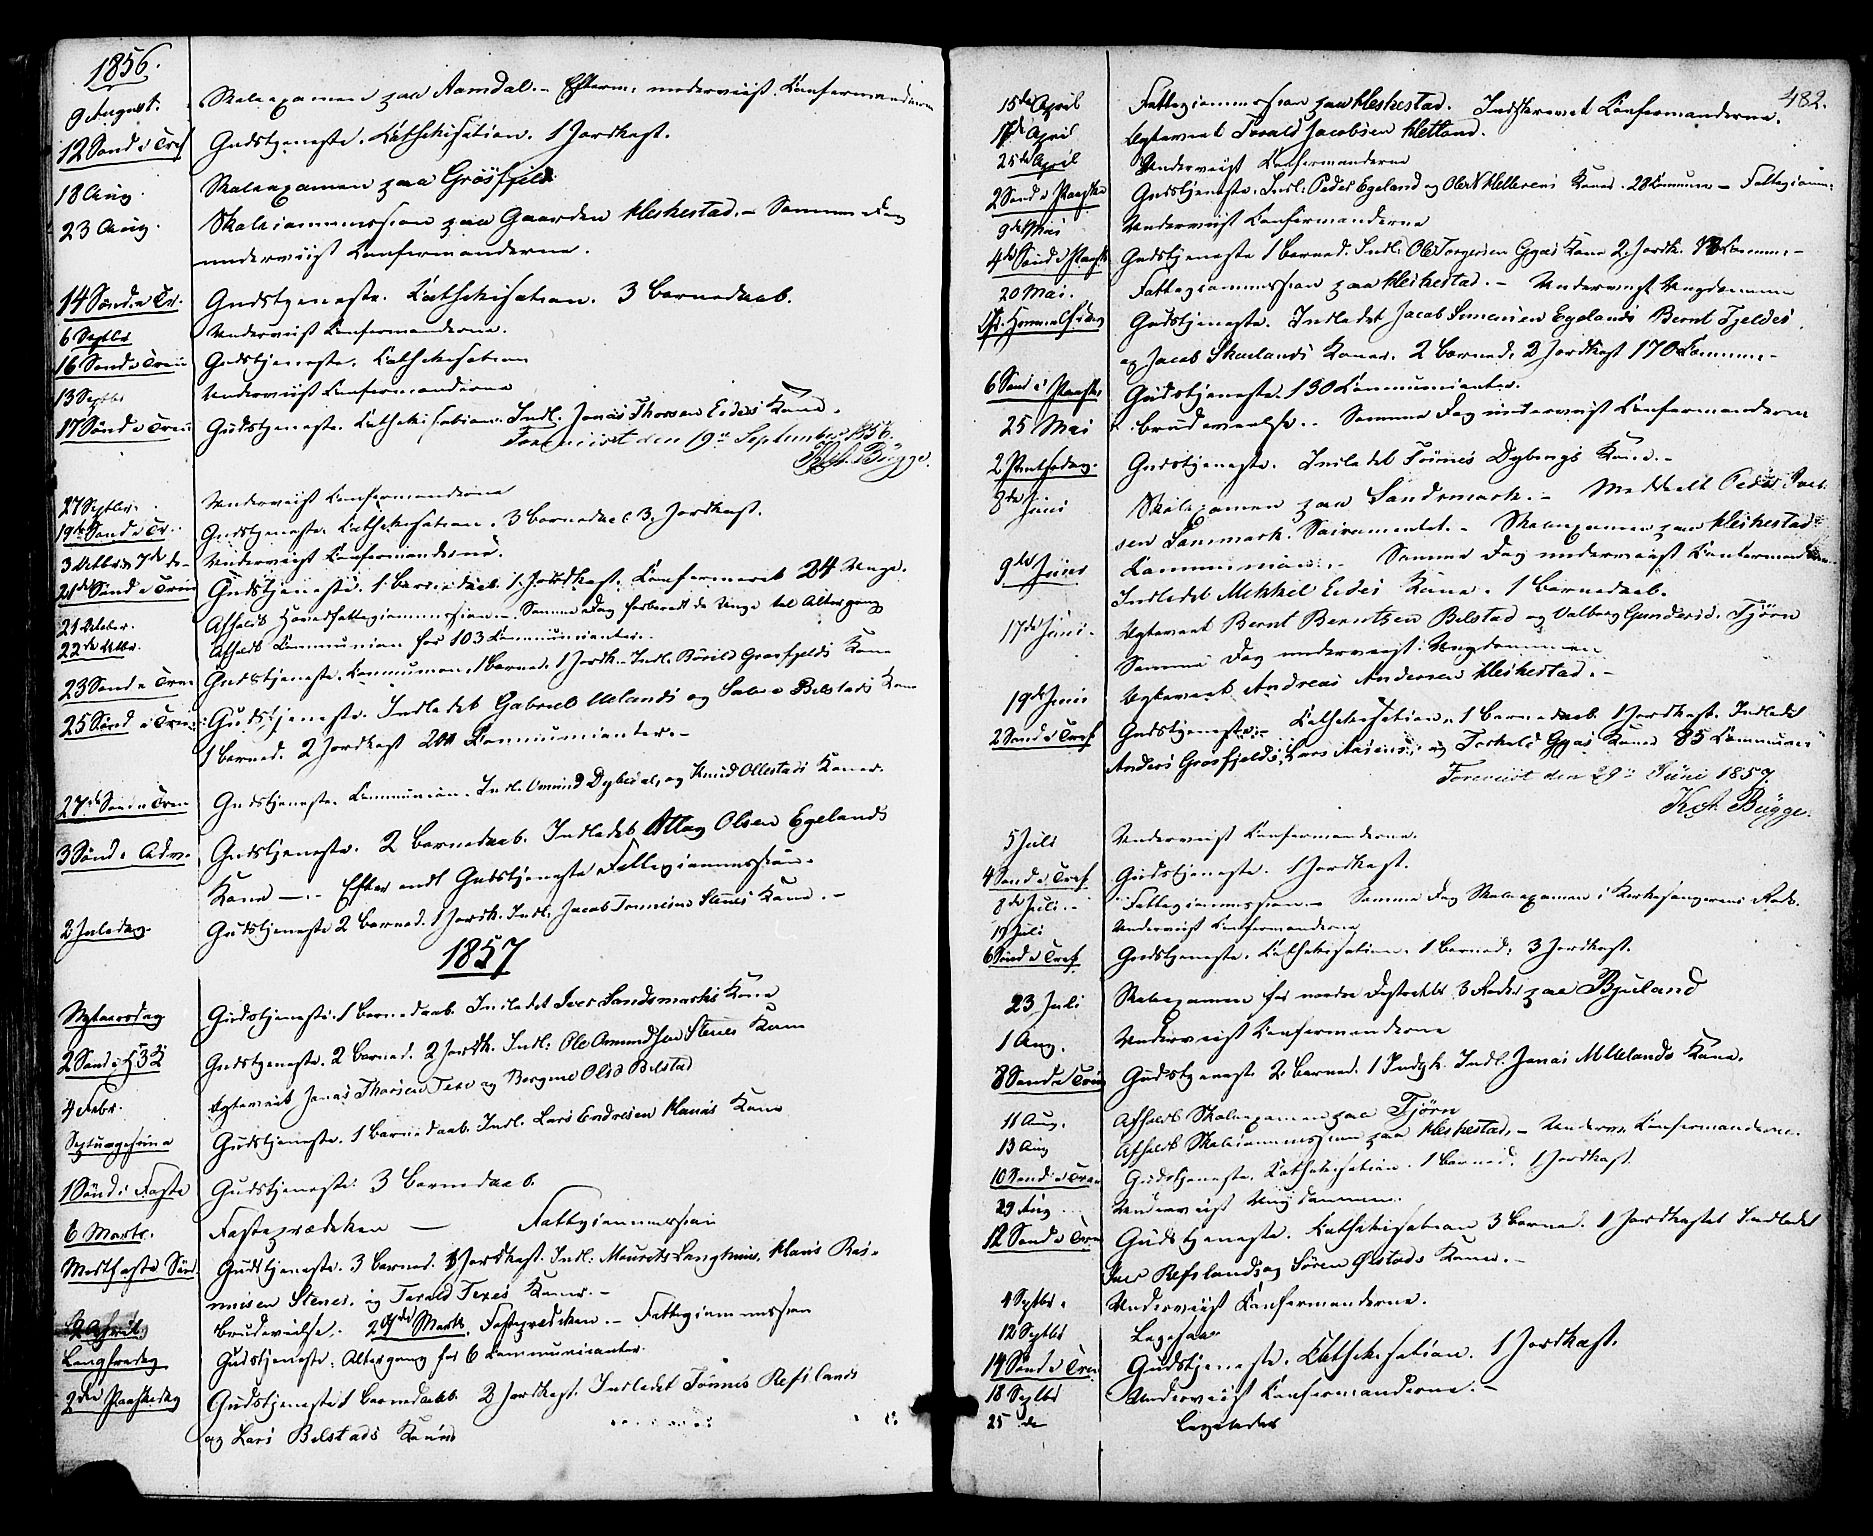 1856.
9 August. Skoleexamen paa Aamdal. – Efterm: underviist Confirmanderne
12 Sønd e Tref Gudstjeneste. Cathekisation. 1 Jordkast.
18 Aug. Skoleexamen paa Grøsfjeld
23 Aug. Skolecommission paa Gaarden Heskestad. – Samme Dag
underviist Confirmanderne.
14 Sønd. e Tr. Gudstjeneste. Cathekisation. 3 Barnedaab.
6 Septbr Underviist Confirmanderne.
16 Sønd e Trin Gudstjeneste. Cathekisation
13 Septbr Underviist Confirmanderne
17 Sønd e Trin Gudstjeneste. Cathekisation. Indl. Jonas Thorsen Eides Kone.
Foreviist den 19de September 1856.
K.A. Bugge.
27 Septbr. Underviist Confirmanderne
19de Sønd e Tr. Gudstjeneste. Cathekisation. 3 Barnedaab 3 Jordkast.
3 Octbr & 7de do – Underviist Confirmanderne.
21de Sønd e Trin Gudstjeneste. 1 Barnedaab. 1 Jordkast. Confirmeret 24 Unge.
21 October. Afholdt Hovedfattigcommission. – Samme Dag forberedt de Unge til Altergang
22de Octbr. Afholdt Communion for 103 Communicanter. –
23 Sønd e Trin Gudstjeneste. Communion, 1 Barned. 1 Jordk. – Indl. Børild Grosfjelds Kone
25 Sønd e Trin: Gudstjeneste. Indledet Gabriel Ulands og Salve Bilstads Kone
1 Barned. 2 Jordkast 201 Communicanter. –
27de Sønd e Trin Gudstjeneste. Communion. Indl. Omund Dybings, og Knud Ollestads Koner.
3 Sønd i Adv. Gudstjeneste. 2 Barnedaab. Indledet Atlag Olsen Egelands
Kone –. Efter endt Gudstjeneste Fattigcommission. –
2 Juledag. Gudstjeneste 2 Barned. 1 Jordk. Indl. Jacob Tonnesens Stenes Kone. –
1857
Nytaarsdag Gudstjeneste. 1 Barnedaab. Indledet Iver Sandsmarks Kone
2 Sønd e H3K Gudstjeneste. 2 Barned. 2 Jordk. Indl: Ole Omundsen Stenes Kone
4 Febr. Egteviet Jonas Thorsen Texe og Bergine Olsd Bilstad
Septuagesima Gudstjeneste. 1 Barnedaab. Indl. Lars Endresen Hanes Kone
1 Sønd i Faste Gudstjeneste. 3 Barnedaab.
6 Marts. Fasteprædiken — Fattigcommission
Midtfaste Sønd Gudstjeneste. 3 Barned. 1 Jordkast. Indl: Maurits Langhuus, Hans Ras-
musen Stenes, og Torald Texes Koner. –
2 April. Brudevielse. 20de Marts. Fasteprediken. – Fattigcommission
Langfredag Gudstjeneste. Altergang for 6 Communicanter.
2den Paaskedag Gudstjeneste 1 Barnedaab. 2 Jordkast. Indledet Tønnes Refslands
og Lars Bilstads Koner
482.
15de April Fattigcommission paa Heskestad. Indskrevet Confirmanderne.
17de April Egteviet Torald Jacobsen Hetland.
25de April Underviist Confirmanderne
2 Sønd e Paaske Gudstjeneste. Indl: Peder Egeland og Ole Hellerens Koner. 28 Commun – Fattigcomm:
9de Mai Underviist Confirmanderne
4de Sønd e Paaske Gudstjeneste 1 Barned. Indl: Ole Torgersen Gyas Kone 2 Jordk. Commun: –
20 Mai. Fattigcommission paa Heskestad. – Underviist Ungdommen
Chr. Himmelfartsdag Gudstjeneste. Indledet Jacob Simensen Egelands Bernt Fjeldes
og Jacob Skarlands Koner. 2 Barned. 2 Jordkast 170 Commun. –
6 Sønd e Paaske Gudstjeneste. 130 Communicanter.
25 Mai Brudevielse. Samme Dag underviist Confirmanderne
2 Pintsedag. Gudstjeneste. Indledet Tønnes Dybings Kone. –
8de Juni Skoleexamen paa Sandsmark. – Meddeelt Peder
sen Sandmark Sacramentet. – Skoleexamen paa Heskestad
9de Juni Communion. Samme Dag underviist Confirmanderne
Indledet Mikkel Eides Kone. 1 Barnedaab.
17de Juni. Egteviet Bernt Berntsen Bilstad og Valborg Gundersd. Tjørn
Samme Dag underviist Ungdommen
19de Juni Egteviet Andreas Andersen Heskestad. –
2 Sønd e Tref Gudstjeneste. Cathekisation. 1 Barnedaab. 1 Jordkast. Indledet
Anders Grosfjelds, Lars Aasens, og Torkild Gyas Koner 85 Communic
Foreviist den 29de Juni 1857.
K.A. Bugge.
5 Juli Underviist Confirmanderne.
4 Sønd e Tref Gudstjeneste. 1 Jordkast.
8de Juli. – Fattigcommission – Samme Dag Skoleexamen i Kirkesangerens Rode.
Juli Underviist Confirmanderne
6 Sønd e Tref Gudstjeneste. Cathekisation. 1 Barned: 3 Jordkast.
23 Juli Skoleexamen for nordre Distrikts 3 Roder paa Bjuland
1 Aug. Underviist Confirmanderne
8 Sønd e Trin Gudstjeneste 2 Barned. 1 Jordk. Indl. Jonas M Ulands Kone.
11 Aug. Afholdt Skoleexamen paa Tjørn
13 Aug Afholdt Skolecommission paa Heskestad. – Underv. Confirmanderne.
10 Sønd e Trin Gudstjeneste. Cathekisation. 1 Barned. 1 Jordkast.
29 Aug Underviist Ungdommen.
12 Sønd e Trin Gudstjeneste. Kathekisation 3 Barned. 1 Jordkastet Indledet
Iver Refslands og Søren Ølstads Koner. –
4 Septbr. Underviist Confirmanderne.
12 Septbr Ligesaa
14 Sønd e Trin Gudstjeneste. Cathekisation. 1 Jordkast.
18 Septbr Underviist Confirmanderne. –
25 do Ligeledes